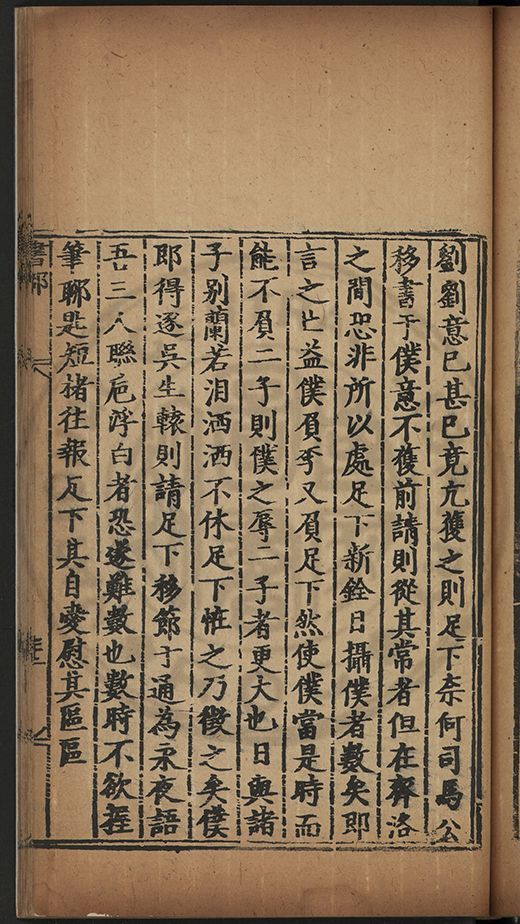 劉劉意已甚已竟亢獲之則足下柰何司馬公
移書于僕意不獲前請則從其常者但在齊洛
之間恐非所以處足下新銓日攝僕者數矣即
言之亡益僕負李又負足下然使僕當是時而
能不負二子則僕之辱二子者更大也日與諸
子别蘭若泪洒洒不休足下恠之乃徵之矣僕
即得逐吳生轅則請足下移節于通為永夜語
吾三人聯巵浮白者恐遂難數也數時不欲握
筆聊是短楮往報足下其自愛慰其區區